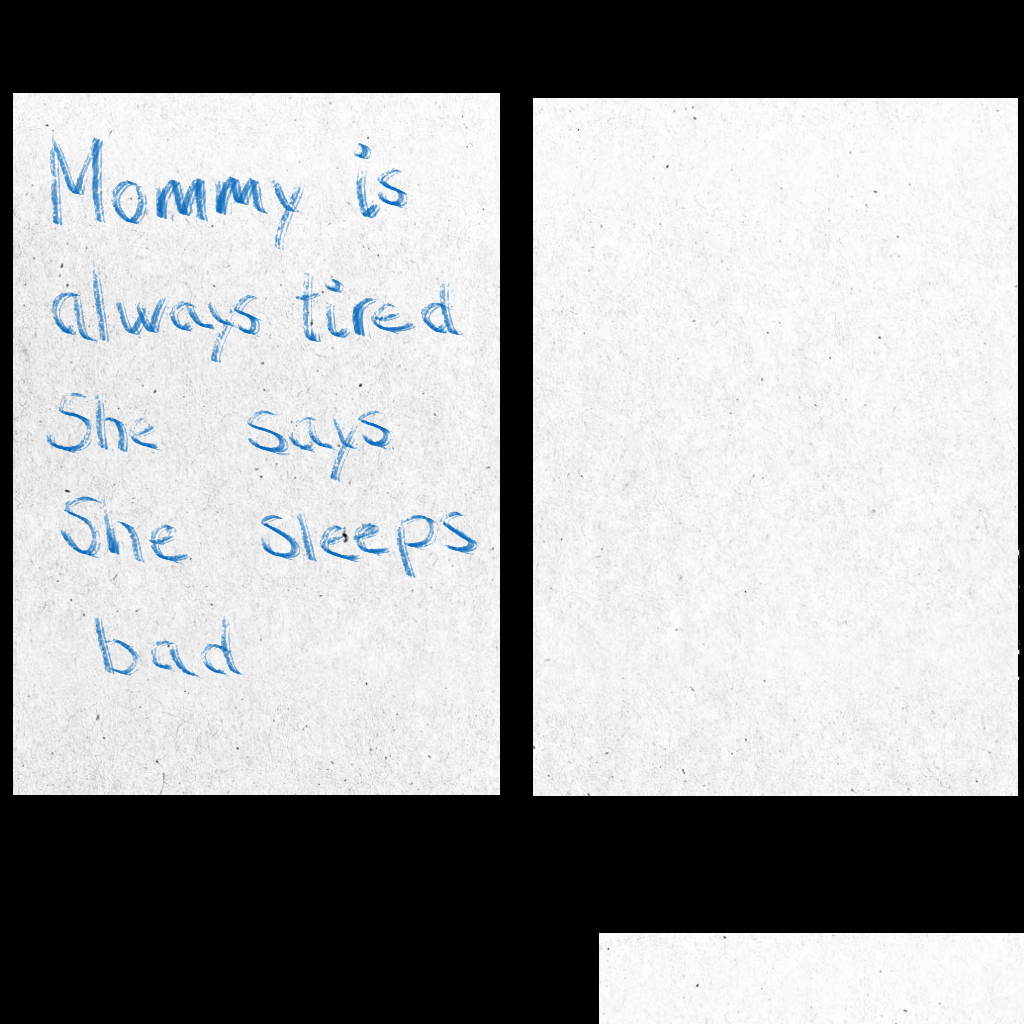 Mommy is
always tired
She says
She sleeps
bad